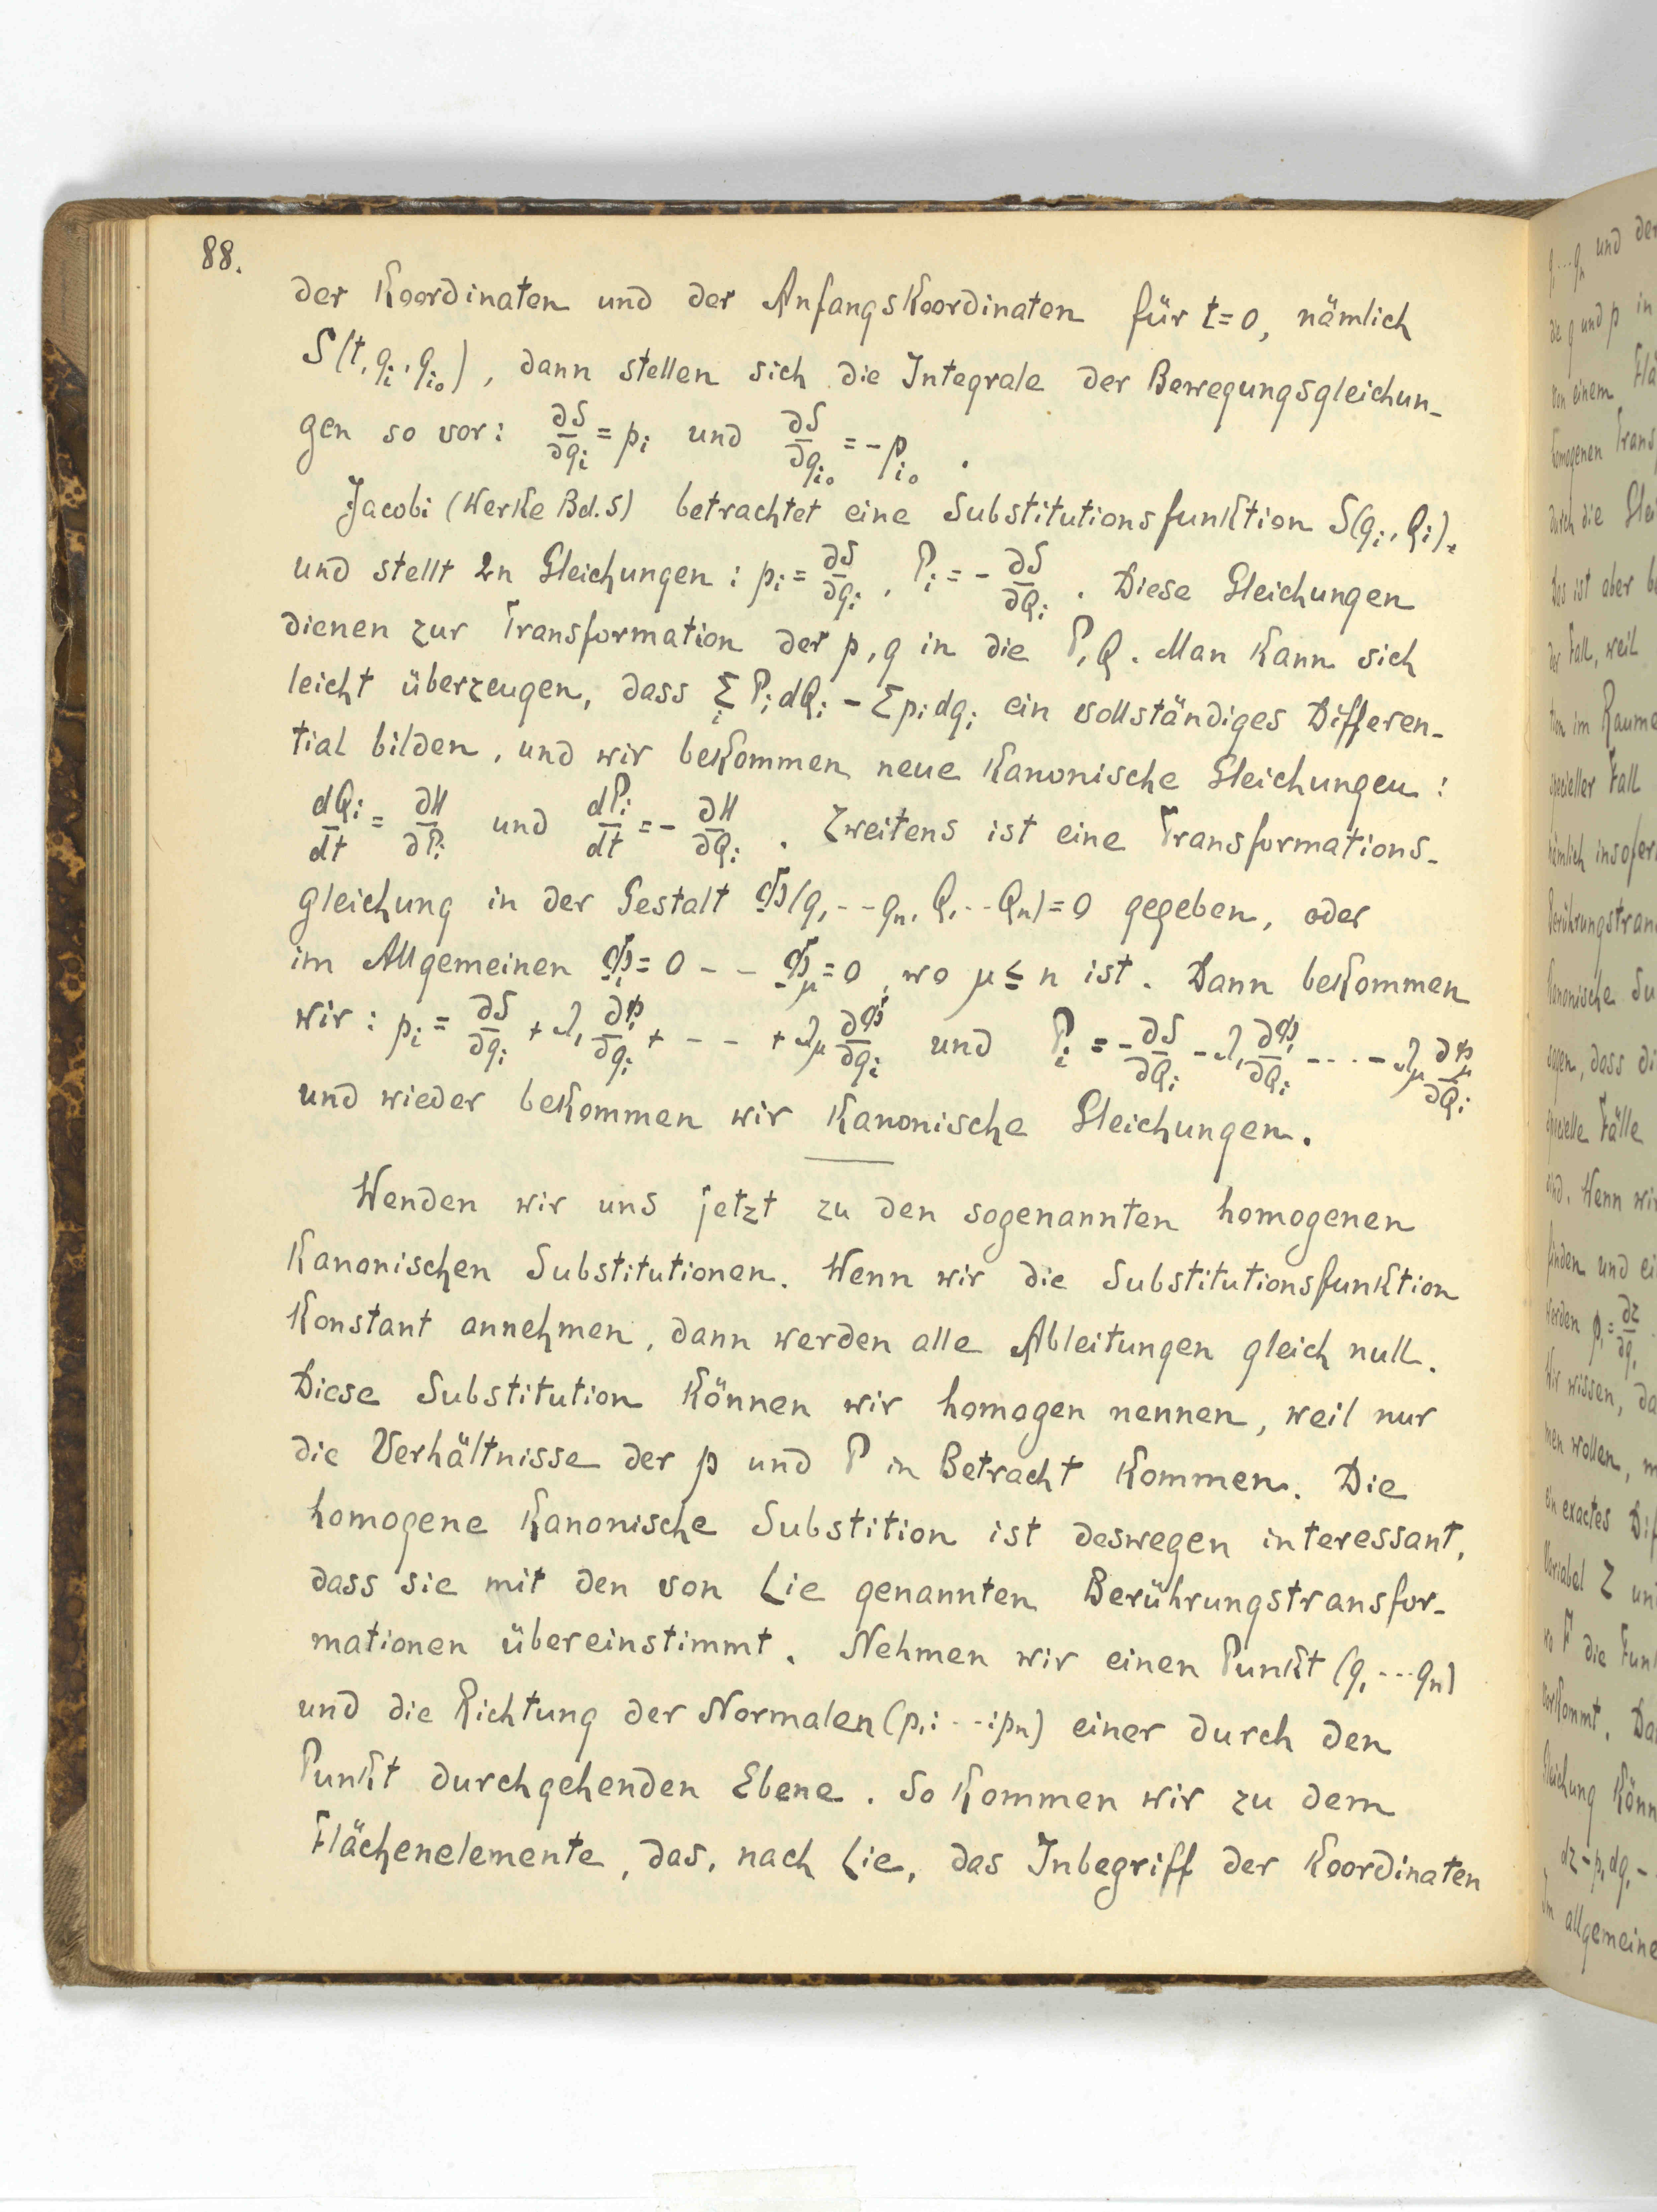 88.
der Koordinaten und der Anfangskoordinaten für t=0, nämlich
S(t, qᵢ, qᵢ₀), dann stellen sich die Integrale der Bewegungsgleichun-
gen so vor: ∂S/∂qᵢ = pᵢ und ∂S/∂qᵢ₀ = -pᵢ₀.
Jacobi (Werke Bd.5) betrachtet eine Substitutionsfunktion S(qᵢ, Qᵢ),
und stellt 2n Gleichungen: pᵢ = ∂S/∂qᵢ, Pᵢ = - ∂S/∂Qᵢ. Diese Gleichungen
dienen zur Transformation der p, q in die P, Q. Man kann sich
leicht überzeugen, dass Σᵢ Pᵢ dQᵢ - Σ pᵢ dqᵢ ein vollständiges Differen-
tial bilden, und wir bekommen neue kanonische Gleichungen:
dQᵢ/dt = ∂H/∂Pᵢ und dPᵢ/dt = - ∂H/∂Qᵢ. Zweitens ist eine Transformations-
gleichung in der Gestalt Φ(q₁--qₙ, Q₁--Qₙ)=0 gegeben, oder
im Allgemeinen Φ₁=0 -- Φ_μ=0, wo μ ≤ n ist. Dann bekommen
wir: pᵢ = ∂S/∂qᵢ + λ₁ ∂Φ₁/∂qᵢ + -- + λ_μ ∂Φ_μ/∂qᵢ und Pᵢ = - ∂S/∂Qᵢ - λ₁ ∂Φ₁/∂Qᵢ - ... - λ_μ ∂Φ_μ/∂Qᵢ
und wieder bekommen wir kanonische Gleichungen.
Wenden wir uns jetzt zu den sogenannten homogenen
kanonischen Substitutionen. Wenn wir die Substitutionsfunktion
konstant annehmen, dann werden alle Ableitungen gleich null.
Diese Substitution können wir homogen nennen, weil nur
die Verhältnisse der p und P in Betracht kommen. Die
homogene kanonische Substition ist deswegen interessant,
dass sie mit den von Lie genannten Berührungstransfor-
mationen übereinstimmt. Nehmen wir einen Punkt (q₁ --- qₙ)
und die Richtung der Normalen (p₁: --- :pₙ) einer durch den
Punkt durchgehenden Ebene. So kommen wir zu dem
Flächenelemente, das, nach Lie, das Inbegriff der Koordinaten
q₁...qₙ und der
die q und p in
von einem Flä
homogenen Trans
durch die Glei
Das ist aber b
der Fall, weil
tion im Raume
specieller Fall
nämlich insofern
Berührungstran
kanonische Su
sagen, dass di
specielle Fälle
sind. Wenn wir
finden und ei
werden p₁ = ∂z/∂q₁
Wir wissen, da
men wollen, m
ein exactes Dif
Variabel Z un
wo F die Funk
vorkommt. Da
Gleichung könn
dz - p₁dq₁ -
Im allgemeine